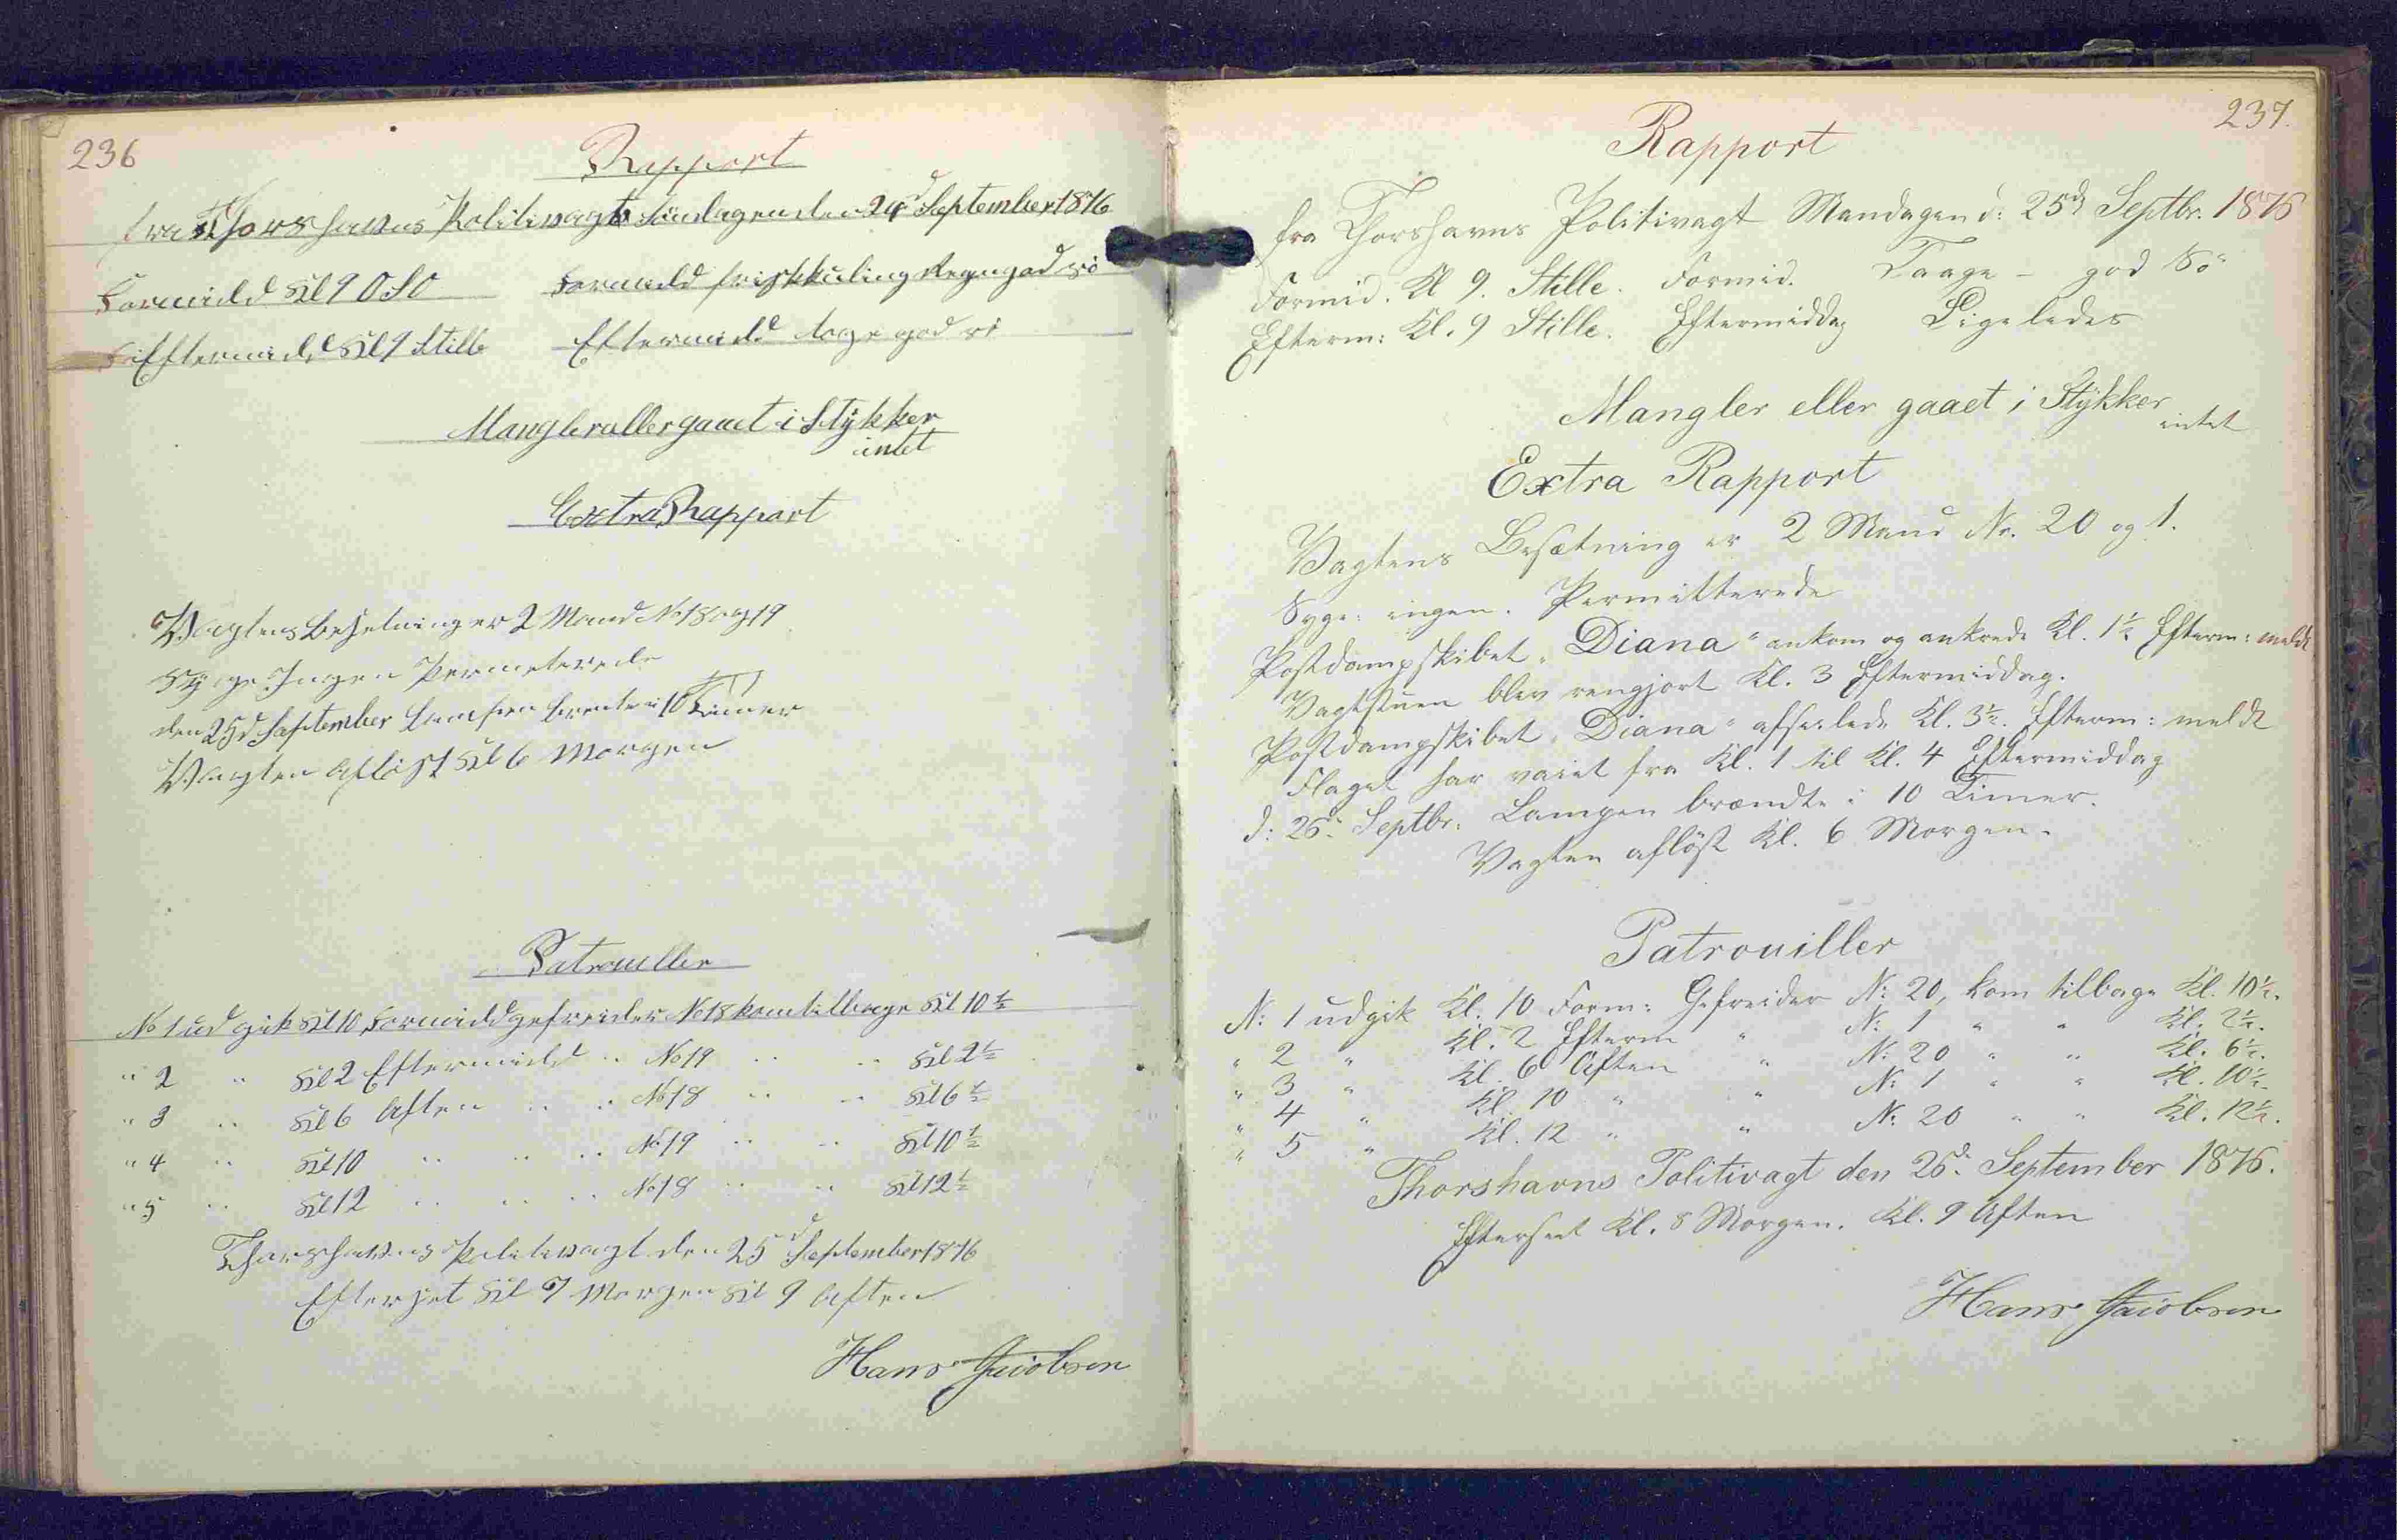 236
Rapport
fra Thorshavns Politivagt Söndagen den 24d September 1876
Formidd Kl 9 OSO Formidd frisk Kuling Regn god sö
Eftermidd Kl 9 Stille Eftermidd tage god sö
Mangler eller gaaet i Stÿkker
intet
Extra Rapport
Vagtens Besetning er 2 Mand No 18 og 19
Sÿge Ingen Permeterede
den 25d September Lampen brente i 10 Timer
Vagten aflöst Kl 6 Morgen
Patrouller
No 1 ud gik Kl 10 Formidd gefreider No 18 kom tilbage Kl 10 1/2
" 2 " Kl 2 Eftermidd " No 19 " " Kl 2 1/2
" 3 " Kl 6 Aften " " No 18 " " Kl 6 1/2
" 4 " Kl 10 " " " No 19 " " Kl 10 1/2
" 5 " Kl 12 " " " No 18 " " Kl 12 1/2
Thorshavns Politivagt den 25d September 1876
Efterset Kl 7 Morgen Kl 9 Aften
Hans Jacobsen
237.
Rapport
fra Thorshavns Politivagt Mandagen d: 25d Septbr. 1876
Formid. Kl 9. Stille. Formid. Taage - god Sö
Efterm: Kl. 9 Stille. Eftermiddag Ligeledes
Mangler eller gaaet i Stÿkker intet
Extra Rapport
Vagtens Besætning er 2 Mand No. 20 og 1.
Syge: ingen. Permitterede
Postdampskibet "Diana" ankom og ankrede Kl. 1 1/2 Efterm: meldt
Vagtstuen blev rengjort Kl. 3 Eftermiddag.
Postdampskibet "Diana" afseilede Kl. 3 1/2. Efterm: meldt
Flaget har vaiet fra Kl. 1 til Kl. 4 Eftermiddag
d: 26d Septbr. Lampen brændte i 10 Timer.
Vagten aflöst Kl. 6 Morgen.
Patrouiller
N: 1 udgik Kl. 10 Form: Gefreider N: 20, kom tilbage Kl. 10 1/2.
" 2 " Kl. 2 Efterm " N: 1 " " Kl. 2 1/2.
" 3 " Kl. 6 Aften " N: 20 " " Kl. 6 1/2.
" 4 " Kl. 10 " " N: 1 " " Kl. 10 1/2.
" 5 " Kl. 12 " " N: 20 " " Kl. 12 1/2.
Thorshavns Politivagt den 26d. September 1876.
Efterseet Kl. 8 Morgen. Kl. 9 Aften
Hans Jacobsen